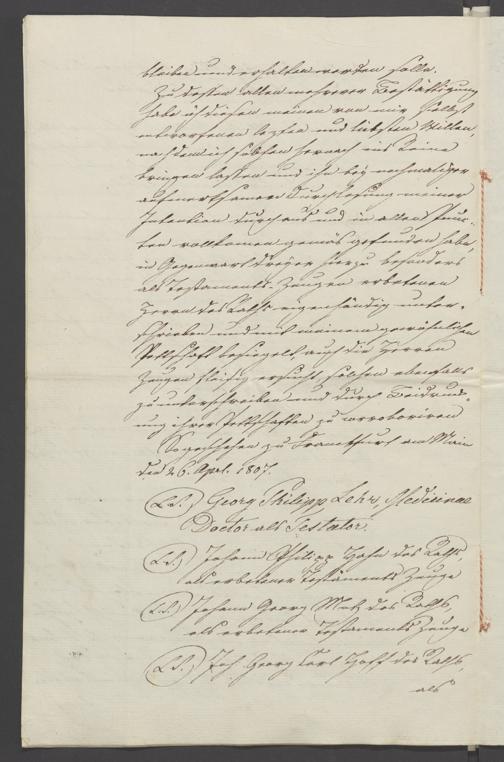 bleiben und erhalten werden solle.
Zu dessen allen mehrerer Bestättigung
habe ich diesen meinen von mir selbst
entworfenen lezten und liebsten Willen,
nachdem ich solchen hernach ins Reine
bringen lassen und ihn bey nochmaliger
aufmerksamen Durchlesung meiner
Intention durchaus und in allen Punc-
ten vollkommen gemäs gefunden habe,
in Gegenwart dreyer hierzu besonders
als Testaments-Zeugen erbetenen
Herren des Raths eigenhändig unter-
schrieben und mit meinem gewöhnlichen
Pettschaft besiegelt auch die Herren
Zeugen fleisig ersucht, solchen ebenfalls
zu unterschreiben und durch Beidruck-
ung ihrer Pettschaften zu corroboriren
So geschehen zu Franckfurt am Main
den 26. Apl. 1807.
(L.S.) Georg Philipp Lehr, Medicinae
Doctor als Testator.
(L.S.) Johann Philipp Hahn des Raths,
als erbetener Testaments Zeuge
(L.S.) Johann Georg Metz des Raths,
als erbetener Testaments Zeuge
(L.S.) Joh. Georg Carl Hoff des Raths,
als